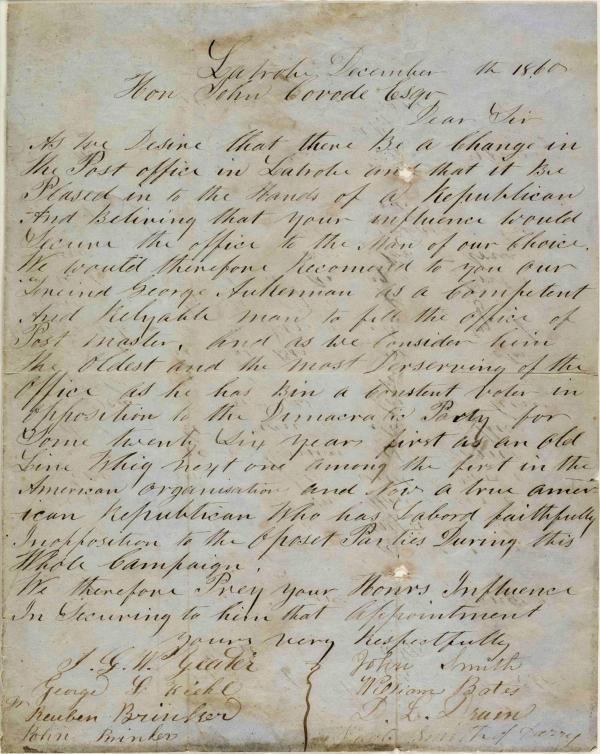 Latrobe December th 1860
Hon John Covode Esqr
Dear Sir
As We Desire that there Be a Change in
the Post office in Latrobe and that it Be
Plased in to the Hands of a Republican
And Beliving that your influence would
Secure the office to the Man of our Choice.
We would therefore Recomend to you our
Freind George Aukerman as a Competent
And Relyable man to fill the office of
Post master, and as we Consider him
the Oldest and the most Derserving of the
Office as he has Bin a Constent voter in
Opposition to the Dimacratic Party for
Some twenty Six years first as an Old
Line Whig next one among the first in the
American organisation and Now a true amer
ican Republican Who has Labord faithfully
Inopposition to the Oposet Parties During this
Whole Campaign.
We therefore Prey your Honrs Influence
In Securing to him that Appointment
Yours very Respectfully
John Smith
George L
William Bates
Reuben Brinker
John Brinker